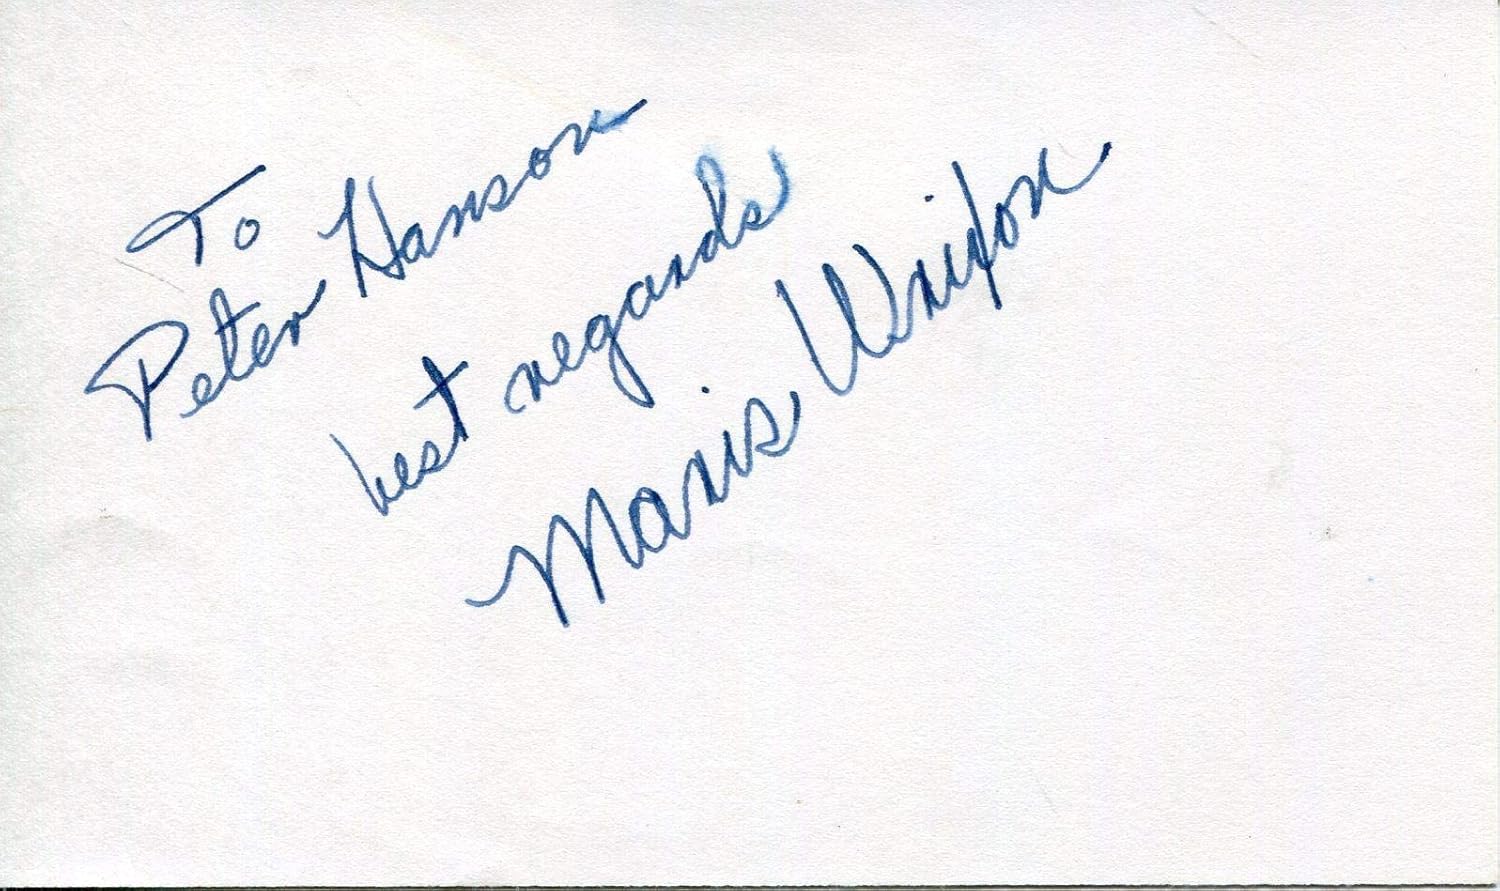 To
Peter Hanson
best regards
Maris Wrixon